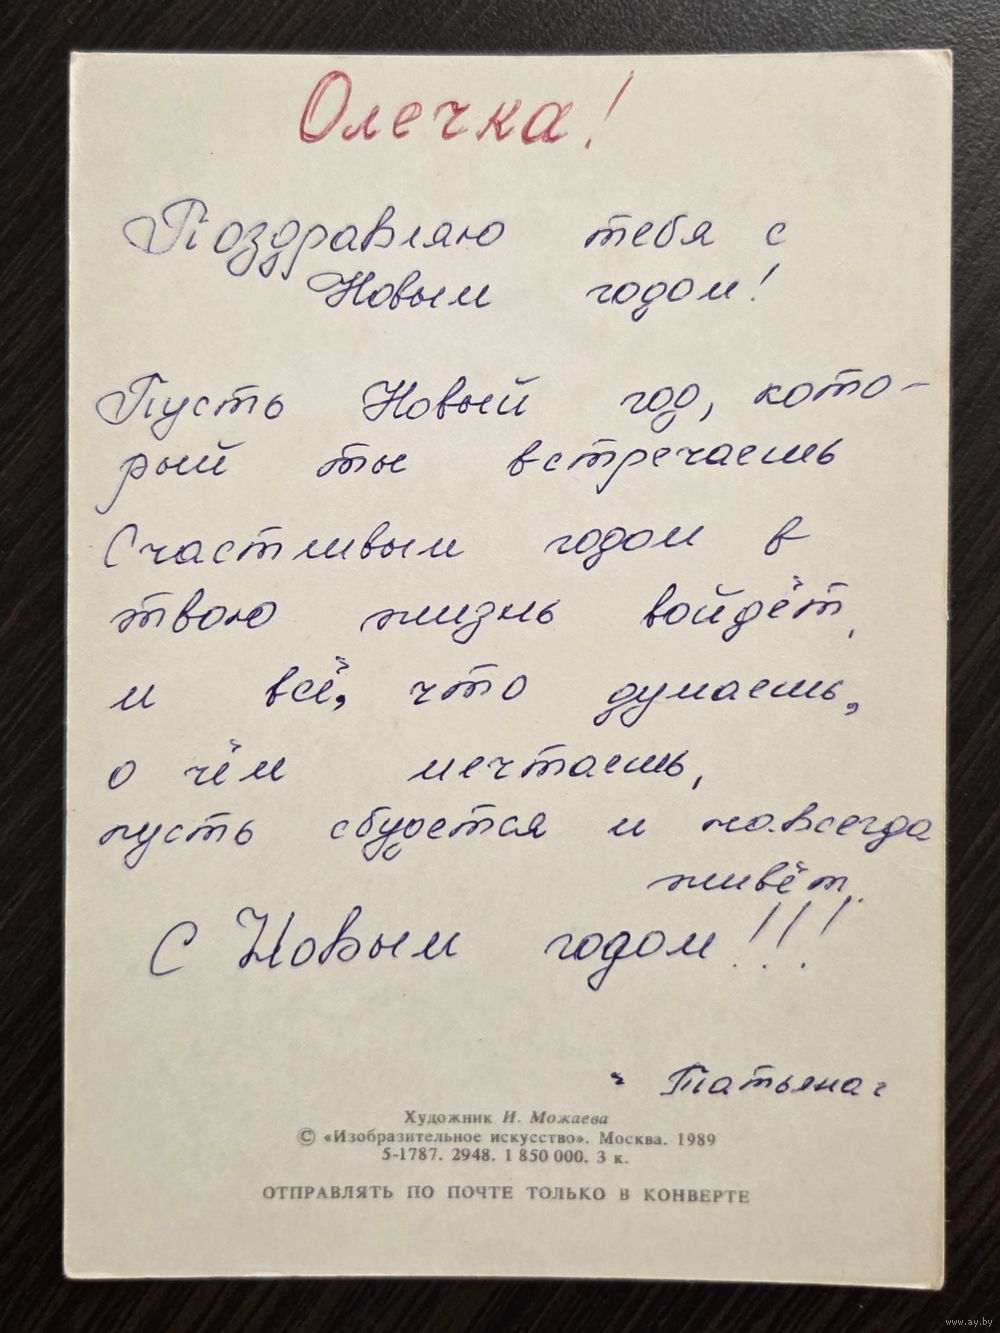 Олечка!
Поздравляю тебя с
Новым годом!
Пусть Новый год, кото-
рый ты встречаешь
Счастливым годом в
твою жизнь войдёт,
и всё, что думаешь,
о чём мечтаешь,
пусть сбудется и навсегда
живёт.
С Новым годом!!!
Татьяна
Художник И. Можаева
© «Изобразительное искусство». Москва. 1989
5-1787. 2948. 1 850 000. 3 к.
ОТПРАВЛЯТЬ ПО ПОЧТЕ ТОЛЬКО В КОНВЕРТЕ
www.ay.by